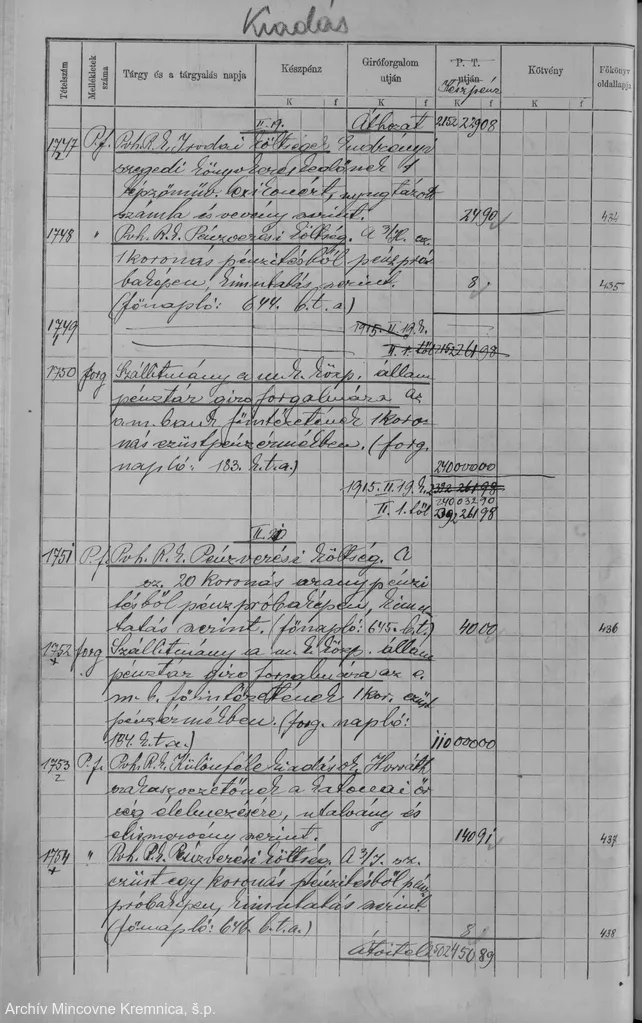 Kiadás
Tételszám Mellékletek száma Tárgy és a tárgyalás napja Készpénz Giróforgalom utján P. T. utján Kötvény Főkönyv oldallapja
Készpénz
K f K f K f K f
II. 19. Áthozat 2152 279 08
1747 P.f. Pvh. R. k. Irodai költségek
szegedi könyvkereskedőnek 1
képzőműv. nyugtázott
számla és vevény szerint. 24 90 434
1748 " Pvh. R. k. Pénzverési költség. A ez.
1 koronás pénzítésből pénzpró-
baképen, kimutatás szerint. 8 435
(főnapló: 644. b.t.a)
1749 1915. II. 19. k.
II. 1. től 2152 261 98
1750 forg Szállitmány a m. k. közp. állam
pénztár giro forgalmára az
o. m. bank főintézetének 1 koro-
nás ezüstpénzérmékben. (forg.
napló: 183. k.t.a.) 240 000 00
1915. II. 19. k. 2392 261 98
240 032 90
II. 1. től 2392 261 98
II. 20
1751 P.f. Pvh. R. k. Pénzverési költség. A
sz. 20 koronás aranypénzí-
tésből pénzpróbaképen, kimu-
tatás szerint. (főnapló: 645. b.t.) 40 00 436
1752 forg Szállitmány a m. k. közp. állam
pénztár giro forgalmára az o.
m. b. főintézetének 1 kor. ezüst
pénzérmékben. (forg. napló:
184. k.t.a.) 110 000 00
1753 P.f. Pvh. R. k. Különféle kiadások. Horváth
szakaszvezetőnek a katonai őr-
ség élelmezésére, utalvány és
elismervény szerint. 140 91 437
1754 " Pvh. R. k. Pénzverési költség. A sz.
ezüst egy koronás pénzítésből pénz
próbaképen, kimutatás szerint.
(főnapló: 646. b.t.a.) 8 438
Átvitel 2502 450 89
Archív Mincovne Kremnica, š.p.